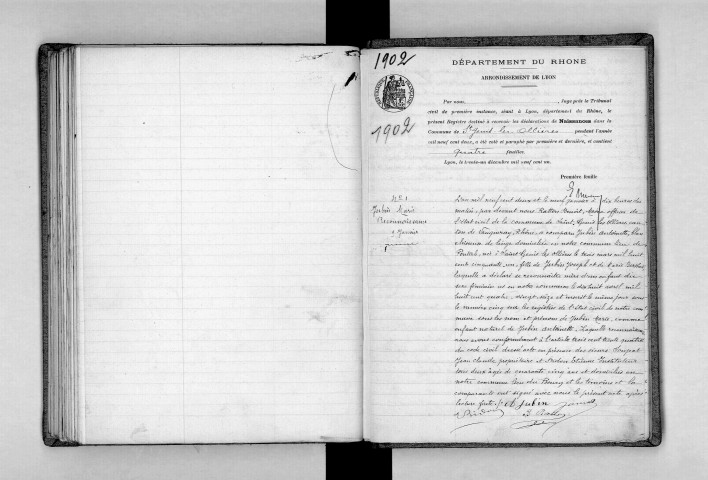 1902
DÉPARTEMENT DU RHONE
ARRONDISSEMENT DE LYON
Par nous, , Juge près le Tribunal
civil de première instance, séant à Lyon, département du Rhône, le
présent Registre destiné à recevoir les déclarations de Naissances dans la
Commune de St Genis les Ollières pendant l'année
mil neuf cent deux, a été coté et paraphé par première et dernière, et contient
quatre feuilles.
Lyon, le trente-un décembre mil neuf cent un.
1902
Première feuille
No 1
Jubin Marie
Reconnaissance
9 Janvier
L'an mil neuf cent deux et le neuf janvier à dix heures du
matin, par devant nous Ratton Benoit, Maire officier de
l'état civil de la commune de Saint Genis les Ollières can-
ton de Vaugneray, Rhône, a comparu Jubin Antoinette, blan-
chisseuse de linge domiciliée en notre commune lieu de
née à Saint Genis les Ollières le trois mars mil huit
cent cinquante un, fille de Jubin Joseph et de Marie
laquelle a déclaré se reconnaître mère d'un enfant du
sexe féminin né en notre commune le dix huit avril mil
huit cent quatre vingt seize et inscrit le même jour sous
le numéro cinq sur les registres de l'état civil de notre com-
mune sous les nom et prénom de Jubin Marie, comme
enfant naturel de Jubin Antoinette. Laquelle reconnaissance
nous avons conformément à l'article trois cent trente quatre
du code civil dressé acte en présence des sieurs
Jean Claude propriétaire et Etienne Instituteur
tous deux âgés de quarante cinq ans et domiciliés en
notre commune lieu du Bourg et les témoins et la
comparante ont signé avec nous le présent acte après
lecture faite. Jubin